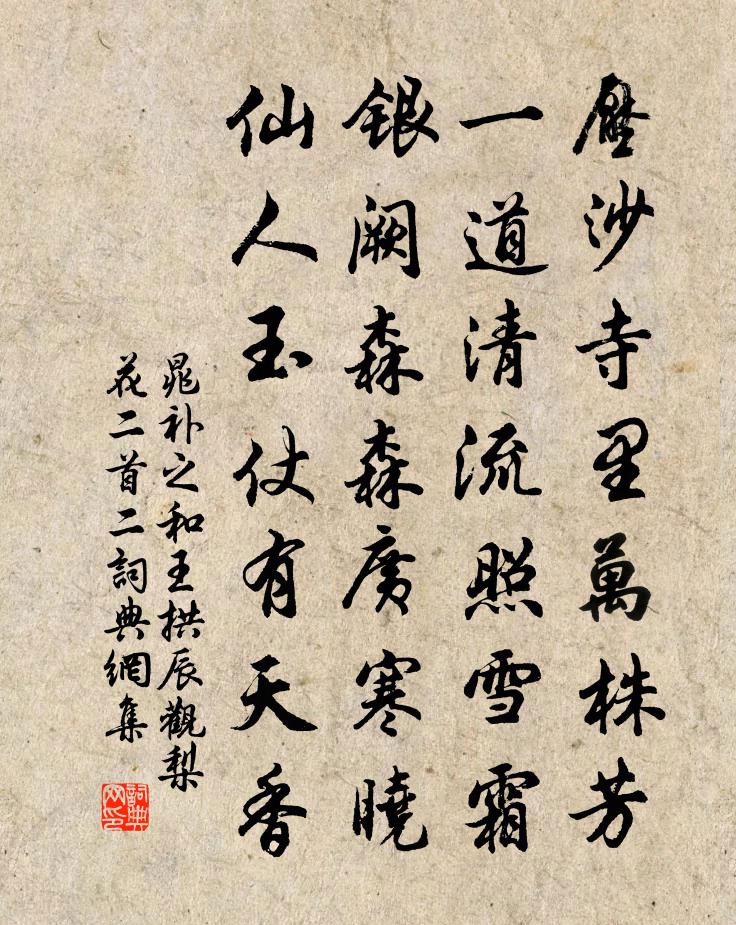 壓沙寺里萬株芳
一道清流照雪霜
銀闕森森廣寒曉
仙人玉仗有天香
晁补之和王拱辰觀梨
花二首二詞典網集
詞典
网印